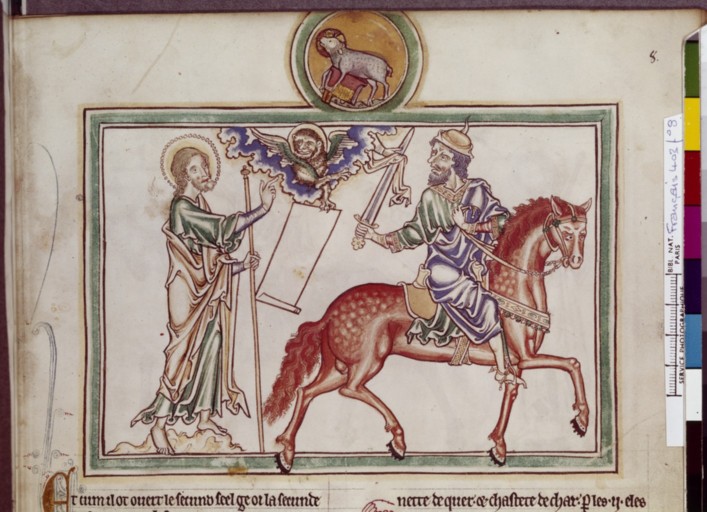 8.
Et cum il ot ouert le secund seel ge oi la secunde
nette de quer ⁊ chastete de char. P les .ij. eles
BIBL. NAT. PARIS
Français 403 fº 8
SERVICE PHOTOGRAPHIQUE